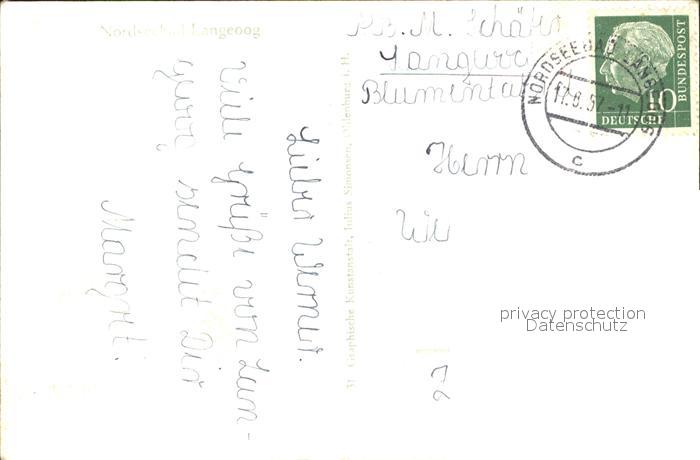 Nordseebad Langeoog
Lieber Werner.
Viele Grüße von Lan-
geoog, sendet Dir
Margret.
31 Graphische Kunstanstalt, Julius Simonsen, Oldenburg i. H.
M. Schäfer
Langeoog
Blumental
Herrn
23
NORDSEEBAD LANGEOOG
17.8.57-11
c
10
DEUTSCHE
BUNDESPOST
privacy protection
Datenschutz